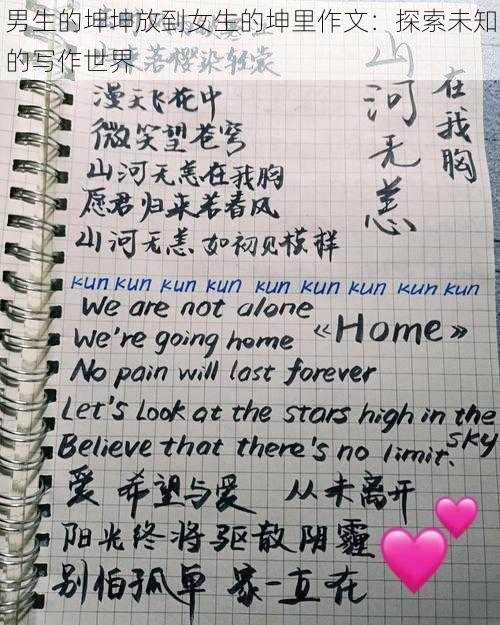 男生的坤坤放到女生的坤里作文：探索未知
的写作世界
落樱染轻裳
漫天飞花中
微笑望苍穹
山河无恙在我胸
愿君归来若春风
山河无恙如初见模样
山河无恙
在我胸
kun kun kun kun kun kun kun kun kun
We are not alone
We're going home
《Home》
No pain will last forever
Let's Look at the stars high in the
sky
Believe that there's no limit.
爱 希望与爱 从未离开
阳光终将驱散阴霾
别怕孤单 家一直在